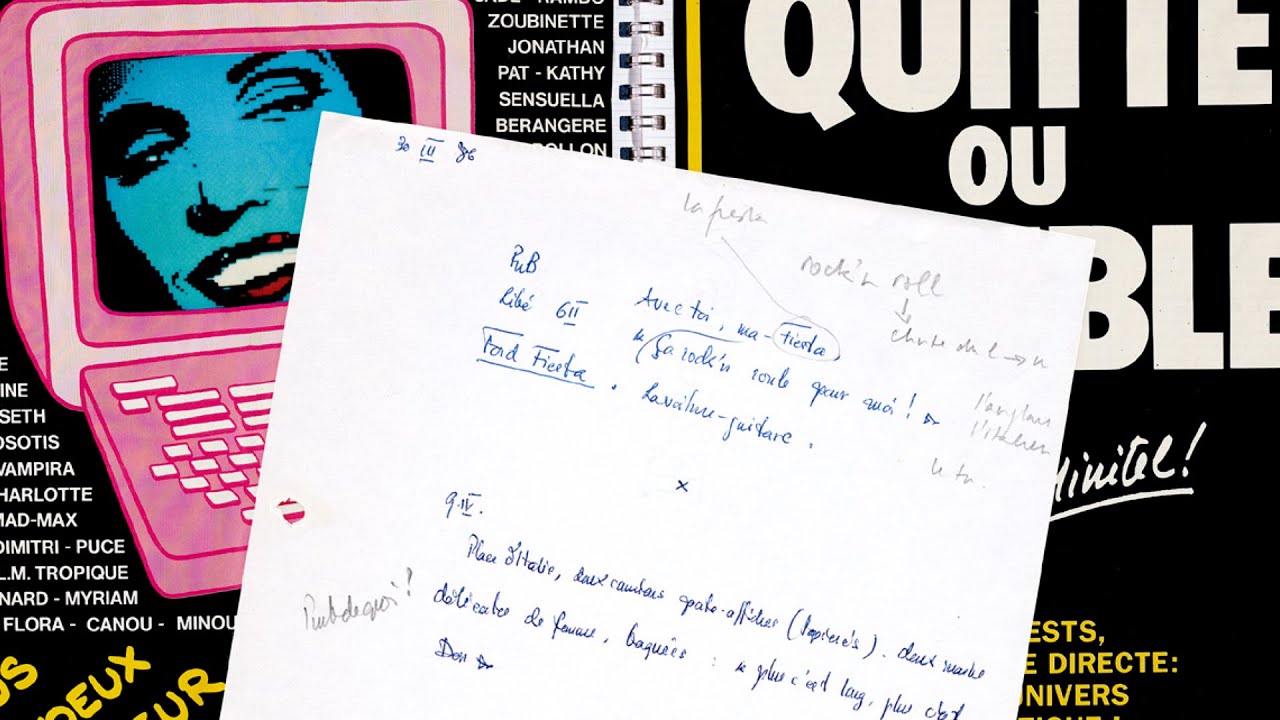 RAMBO
ZOUBINETTE
JONATHAN
PAT - KATHY
SENSUELLA
BERANGERE
OLLON
QUITTE
OU
BLE
Minitel!
30 III 86
la festa
rock'n roll
PuB
Libé 6 II
Ford Fiesta
Avec toi, ma Fiesta
"ça rock'n roule pour moi !"
La voiture-guitare.
chute du l → n
l'anglais
l'italien
le tu.
x
9. IV.
Place d'Italie, deux camions porte-affiches
délicates de femme, baguées : "plus c'est long, plus c'est
Bon"
Pub de quoi !
E
INE
SETH
OSOTIS
VAMPIRA
CHARLOTTE
MAD-MAX
DIMITRI - PUCE
L.M. TROPIQUE
NARD - MYRIAM
FLORA - CANOU - MINOU
US
DEUX
UR
ESTS,
E DIRECTE:
UNIVERS